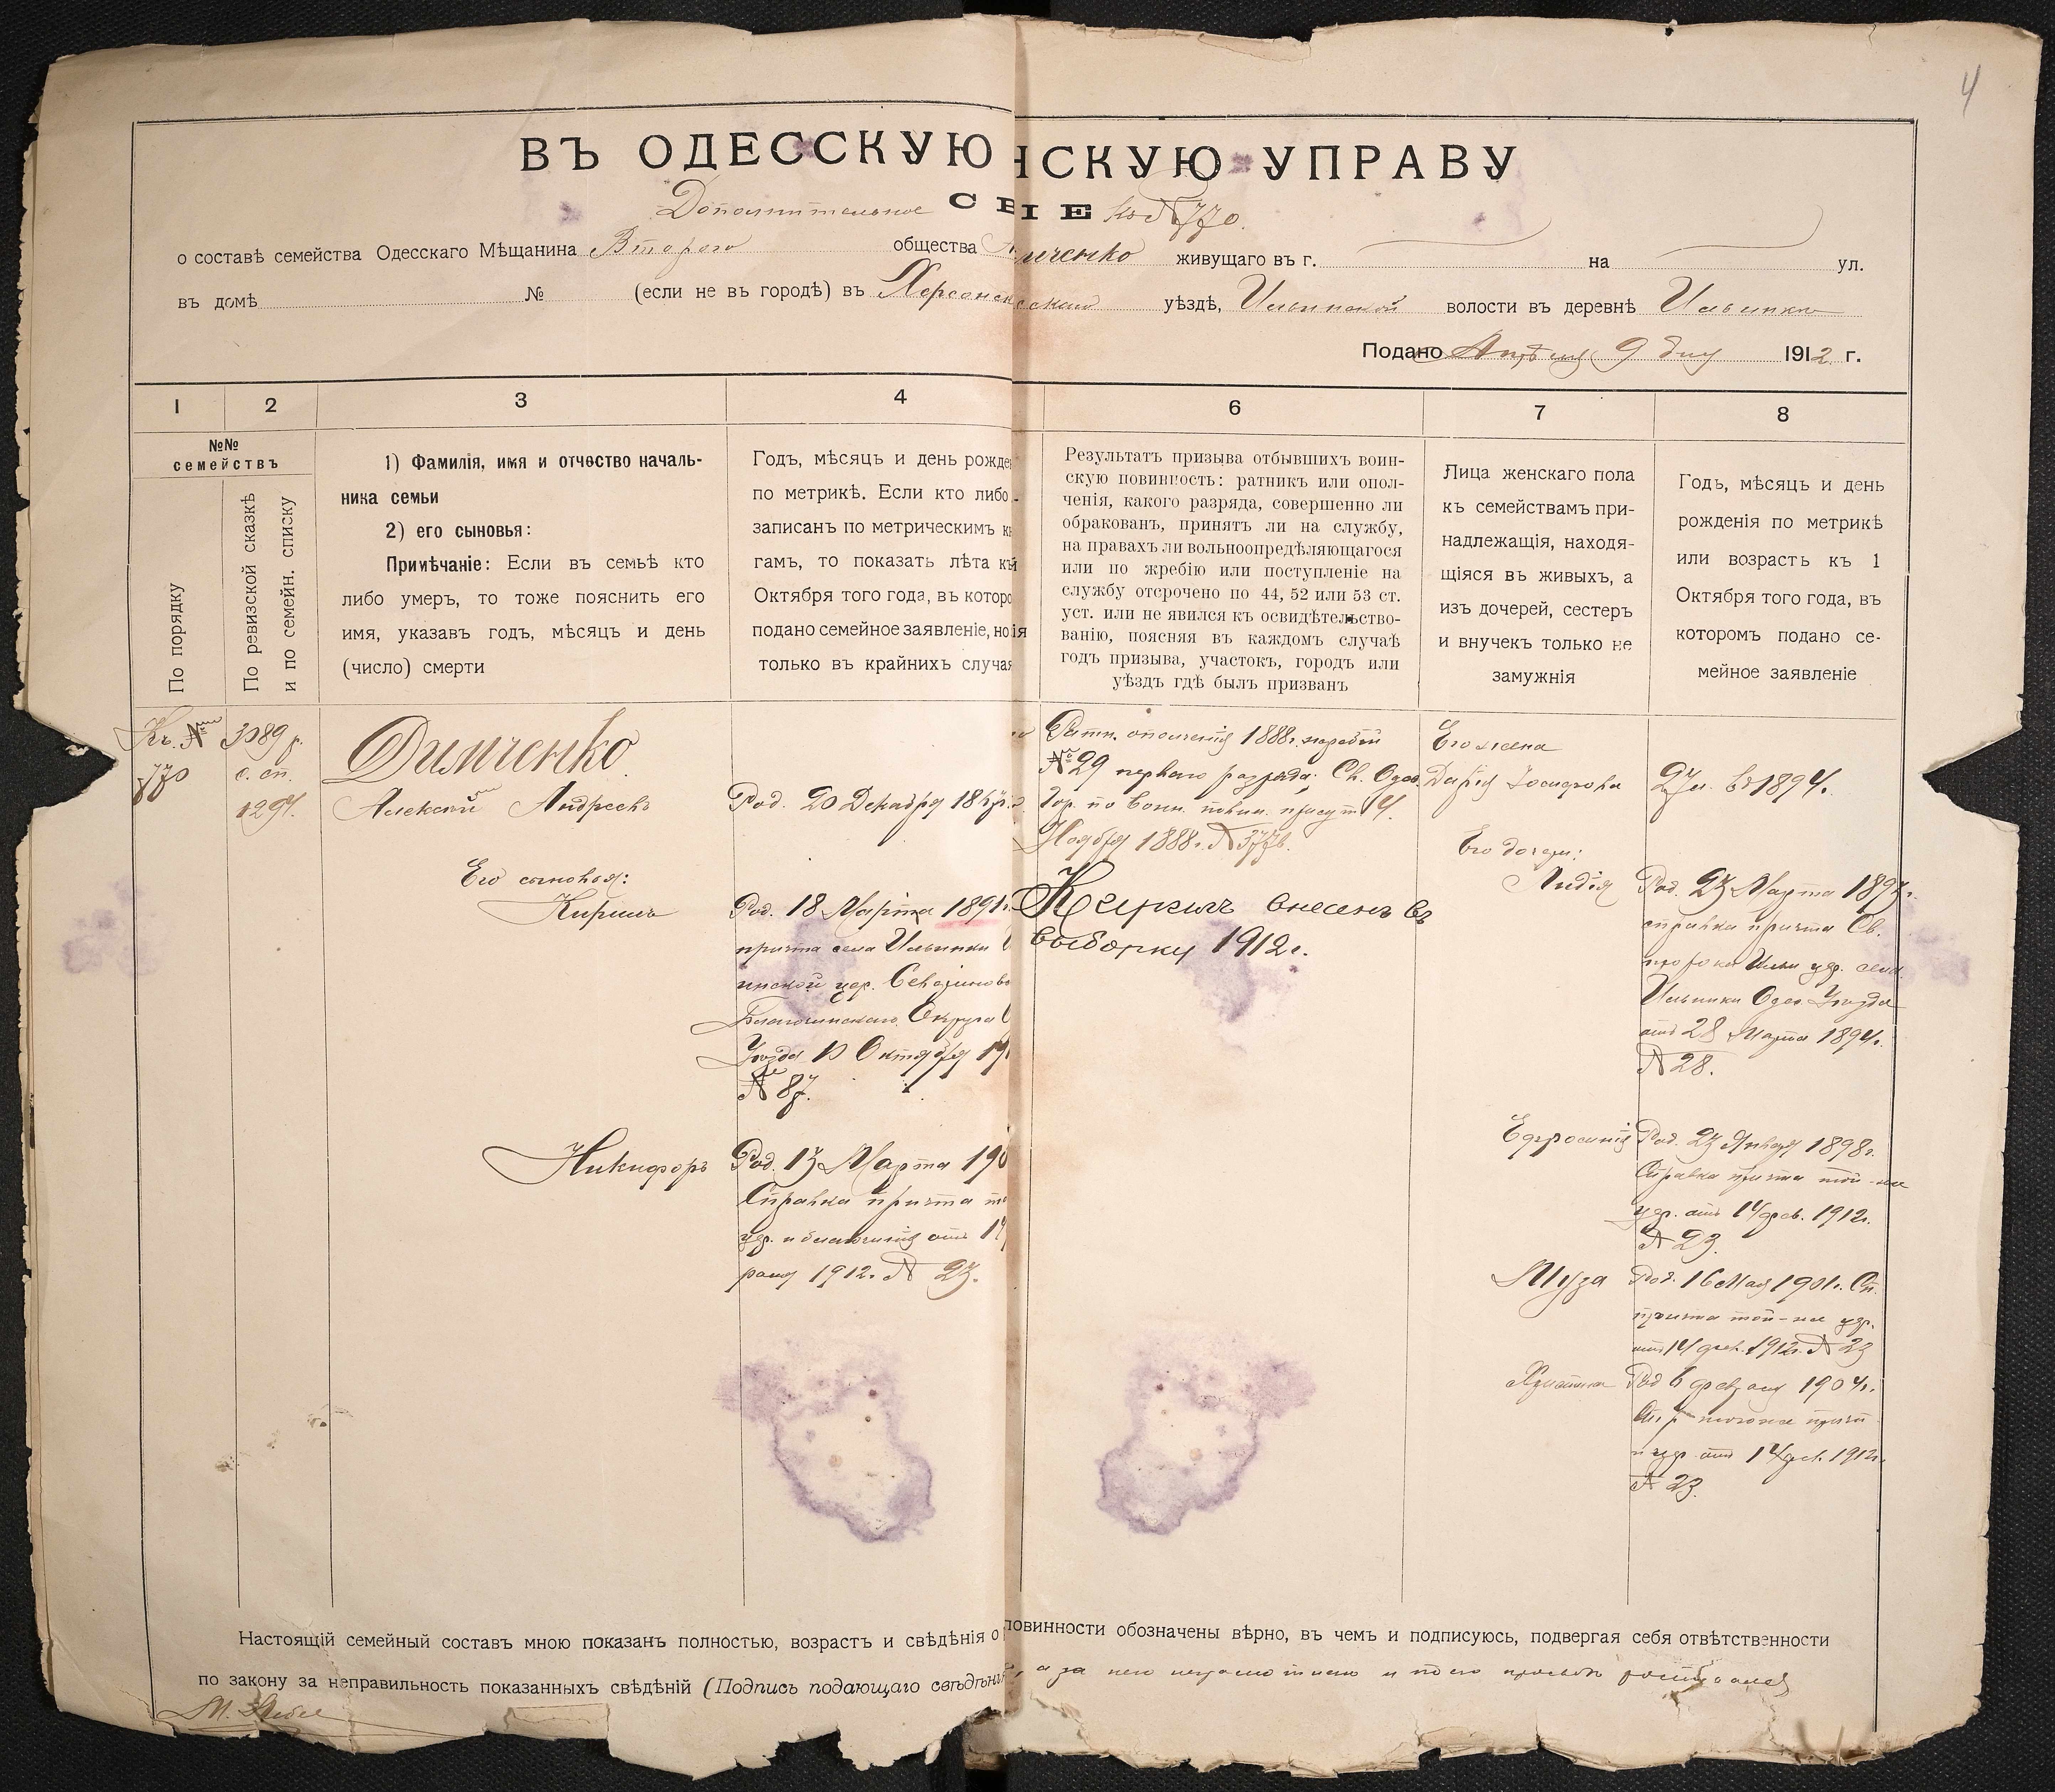 4
ВЪ ОДЕССКУЮ НСКУЮ УПРАВУ
Дополнительное СВ ІЕ къ № 770.
о составѣ семейства Одесскаго Мѣщанина Второго общества ченко живущаго въ г. на ул.
въ домѣ № (если не въ городѣ) въ Херсонск уѣздѣ, Ильинской волости въ деревнѣ Ильинке
Подано Апрѣля 9 дня 1912 г.
1 2 3 4 6 7 8
№№ семействъ
По порядку
По ревизской сказкѣ
и по семейн. списку
1) Фамилія, имя и отчество началь-
ника семьи
2) его сыновья:
Примѣчаніе: Если въ семьѣ кто
либо умеръ, то тоже пояснить его
имя, указавъ годъ, мѣсяцъ и день
(число) смерти
Годъ, мѣсяцъ и день рожде
по метрикѣ. Если кто либо
записанъ по метрическимъ к
гамъ, то показать лѣта къ
Октября того года, въ которо
подано семейное заявленіе, но
только въ крайнихъ случая
Результатъ призыва отбывшихъ воин-
скую повинность: ратникъ или опол-
ченія, какого разряда, совершенно ли
обракованъ, принятъ ли на службу,
на правахъ ли вольноопредѣляющагося
или по жребію или поступленіе на
службу отсрочено по 44, 52 или 53 ст.
уст. или не явился къ освидѣтельство-
ванію, поясняя въ каждомъ случаѣ
годъ призыва, участокъ, городъ или
уѣздъ гдѣ былъ призванъ
Лица женскаго пола
къ семействамъ при-
надлежащія, находя-
щіяся въ живыхъ, а
изъ дочерей, сестеръ
и внучекъ только не
замужнія
Годъ, мѣсяцъ и день
рожденія по метрикѣ
или возрасть къ 1
Октября того года, въ
которомъ подано се-
мейное заявленіе
Къ №
770
3089 р.
с. сп.
1297.
Димченко
Алексѣй Андреевъ
Его сыновья:
Кирилъ
Никифоръ
Род. 20 Декабря
Род. 18 Марта 1891
причта села Ильинки
инской цер.
Благочинскаго Округа
Уѣзда 10 Октября 19
№ 87.
Род. 13 Марта 190
Справка причта
цер. от 14
1912 г. № 23.
Ратн. ополченія 1888 г. жребій
№ 29 перваго разряда; Св. Одес.
Гор. по Воин. повин. присут. 4
Ноября 1888 г. №
Кирилъ внесенъ въ
выборку 1912 г.
Его жена
Дарія Іосифова
Его дочери:
Лидія
Ефросинія
Муза
Христина
27 л. въ 1894 г.
Род. 23 Марта 1893 г.
справка причта Св.
пророка Ильи цер. села
Ильинки Одес. Уѣзда
отъ 28 Марта 1894 г.
№ 28.
Род. 23 Января 1898 г.
Справка причта той-же
цер. отъ 14 фев. 1912 г.
№ 23.
Род. 16 Мая 1901 г. Сп.
причта той-же цер.
отъ 14 фев. 1912 г. № 23
Род 6 февраля 1904 г.
Спр. того же прич
цер отъ 14 фев. 1912 г.
№ 23.
Настоящій семейный составъ мною показанъ полностью, возрастъ и свѣдѣнія о повинности обозначены вѣрно, въ чемъ и подписуюсь, подвергая себя отвѣтственности
по закону за неправильность показанныхъ свѣдѣній (Подпись подающаго свѣдѣні а за него неграмотнаго и по его просьбѣ росписался